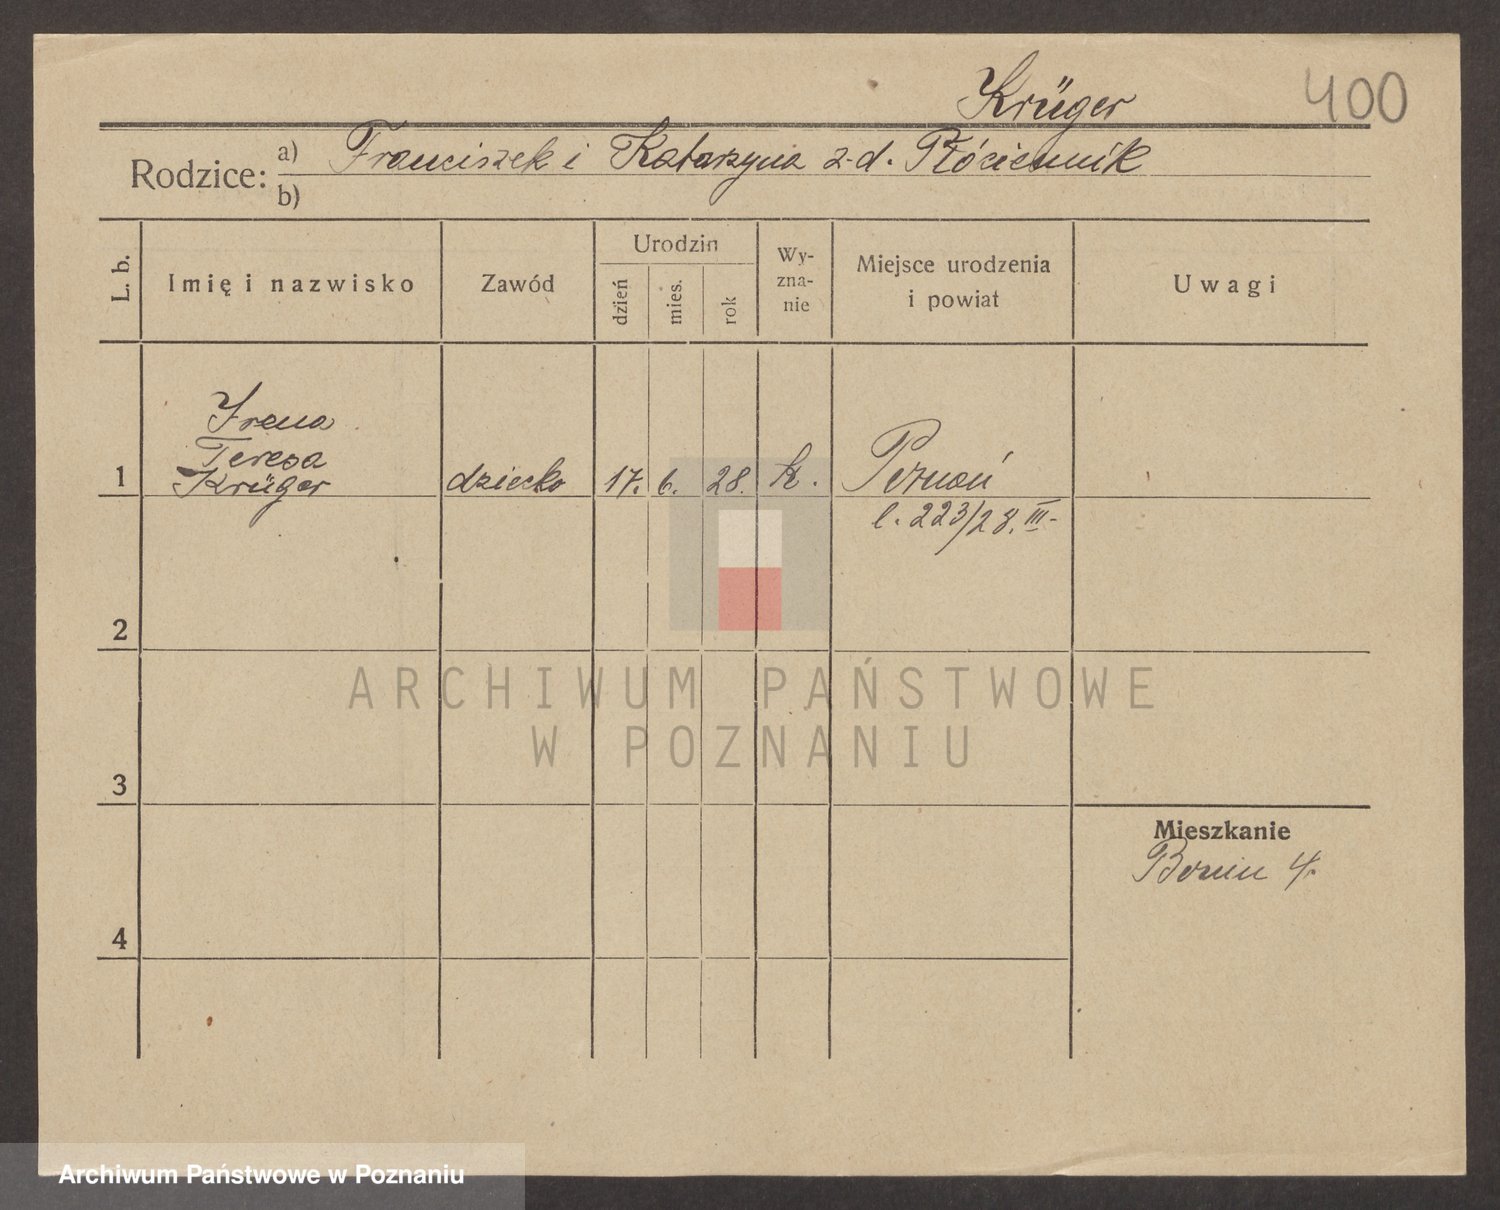 Krüger
400
Rodzice:
a) Franciszek i Katarzyna z-d. Płóciennik
b)
L. b.
Imię i nazwisko
Zawód
Urodzin
dzień
mies.
rok
Wy-
zna-
nie
Miejsce urodzenia
i powiat
Uwagi
Irena
Teresa
1 Krüger dziecko 17. 6. 28. k. Poznań
l. 223/28. III-
2
3
4
Mieszkanie
Bonin 4.
ARCHIWUM PAŃSTWOWE
W POZNANIU
Archiwum Państwowe w Poznaniu